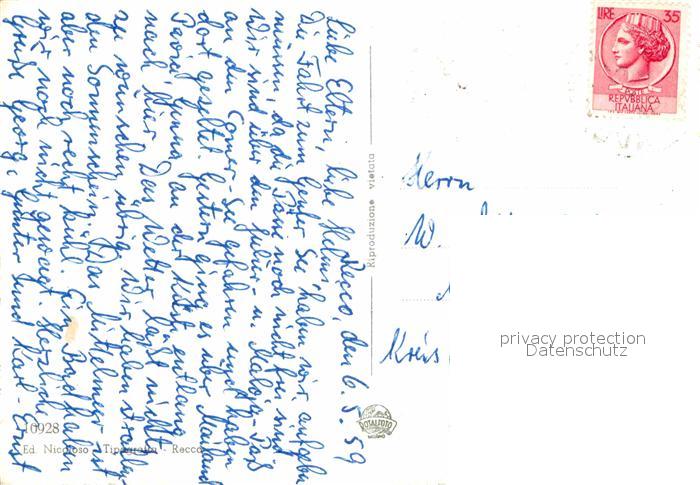 Recco, den 6.5.59
Liebe Eltern, liebe Helma,
Die Fahrt zum Genfer See haben wir aufgeben
müssen, da die Pässe noch nicht frei sind.
Wir sind über den Julier u. Maloja-Paß
an den Comer-See gefahren und haben
dort gezeltet. Gestern ging es über Mailand
Pavia, Genua an der Küste entlang
nach hier. Das Wetter läßt nichts
zu wünschen übrig. Wir haben strahlen-
den Sonnenschein. Das Mittelmeer ist
aber noch recht kühl. Ein Bad haben
wir noch nicht gewagt. Herzliche
Grüße Georg, Günter und Karl-Ernst
10928
Ed. Nicoloso - Tipografia - Recco
Riproduzione vietata
TOTALFOTO
MILANO
LIRE 35
POSTE
REPVBBLICA
ITALIANA
Herrn
W.
Kreis
privacy protection
Datenschutz